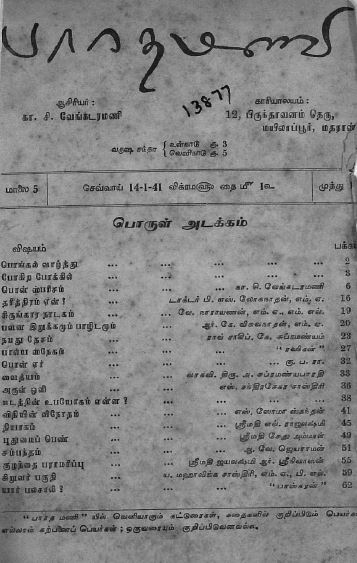 பாரதமணி
13877
ஆசிரியர் :
கா. சி. வேங்கடரமணி
காரியாலயம் :
12, பிருந்தாவனம் தெரு,
மயிலாப்பூர், மதராஸ்
வருஷ சந்தா { உள்நாடு ரூ. 3
வெளிநாடு ரூ. 5
மாலை 5
செவ்வாய் 14-1-41 விக்ரம௵ தை ௴ 1௳
முத்து
பொருள் அடக்கம்
விஷயம் பக்கம்
பொங்கல் வாழ்த்து ... ... ... 2
போகிற போக்கில் ... ... ... 3
பொன் ஸ்பரிசம் ... ... கா. சி. வேங்கடரமணி 6
தரித்திரம் ஏன் ? ... டாக்டர் பி. எஸ். லோகநாதன், எம். ஏ. 16
சிருங்கார நாடகம் ... வே. நாராயணன், எம். ஏ., எம். எல். 19
பல்லை இறுக்கமும் பாழிடமும் ... ஆர். கே. விசுவநாதன், எம். ஏ. 20
நமது தேசம் ... ராவ் சாகிப், கே. சுப்ரமண்யம் 23
பால்ய ஸ்நேகம் ... ... "ரவிசன்" 27
பொன் ஏர் ... ... கு. ப. ரா. 32
வைத்யம் ... வரகவி. திரு. அ. சுப்ரமண்யபாரதி 33
அருள் ஒலி ... எஸ். சந்திரசேகர சாஸ்திரி 36
கூடத்தின் உபயோகம் என்ன ? ... ... 38
விதியின் விநோதம் ... எஸ். லோமா ஸ்கந்தன் 41
தியாகம் ... ஸ்ரீமதி எஸ். ராஜலக்ஷ்மி 45
புதுமைப் பெண் ... ஸ்ரீமதி சேது அம்மாள் 49
சம்பந்தம் ... ஆ. வே. ஜெயராமன் 51
குழந்தை பராமரிப்பு ... ஸ்ரீமதி ஜயலக்ஷ்மி ஆர். ஸ்ரீநிவாஸன் 55
சிறுவர் பகுதி ... ய. மஹாலிங்க சாஸ்திரி, எம். ஏ., பி. எல். 59
யார் பலசாலி ? ... ... "பாஸ்கரன்" 62
"பாரத மணி" யில் வெளியாகும் கட்டுரைகள், கதைகளில் குறிப்பிடும் பெயர்கள்
எல்லாம் கற்பனைப் பெயர்கள் ; ஒருவரையும் குறிப்பிடுவனவல்ல.